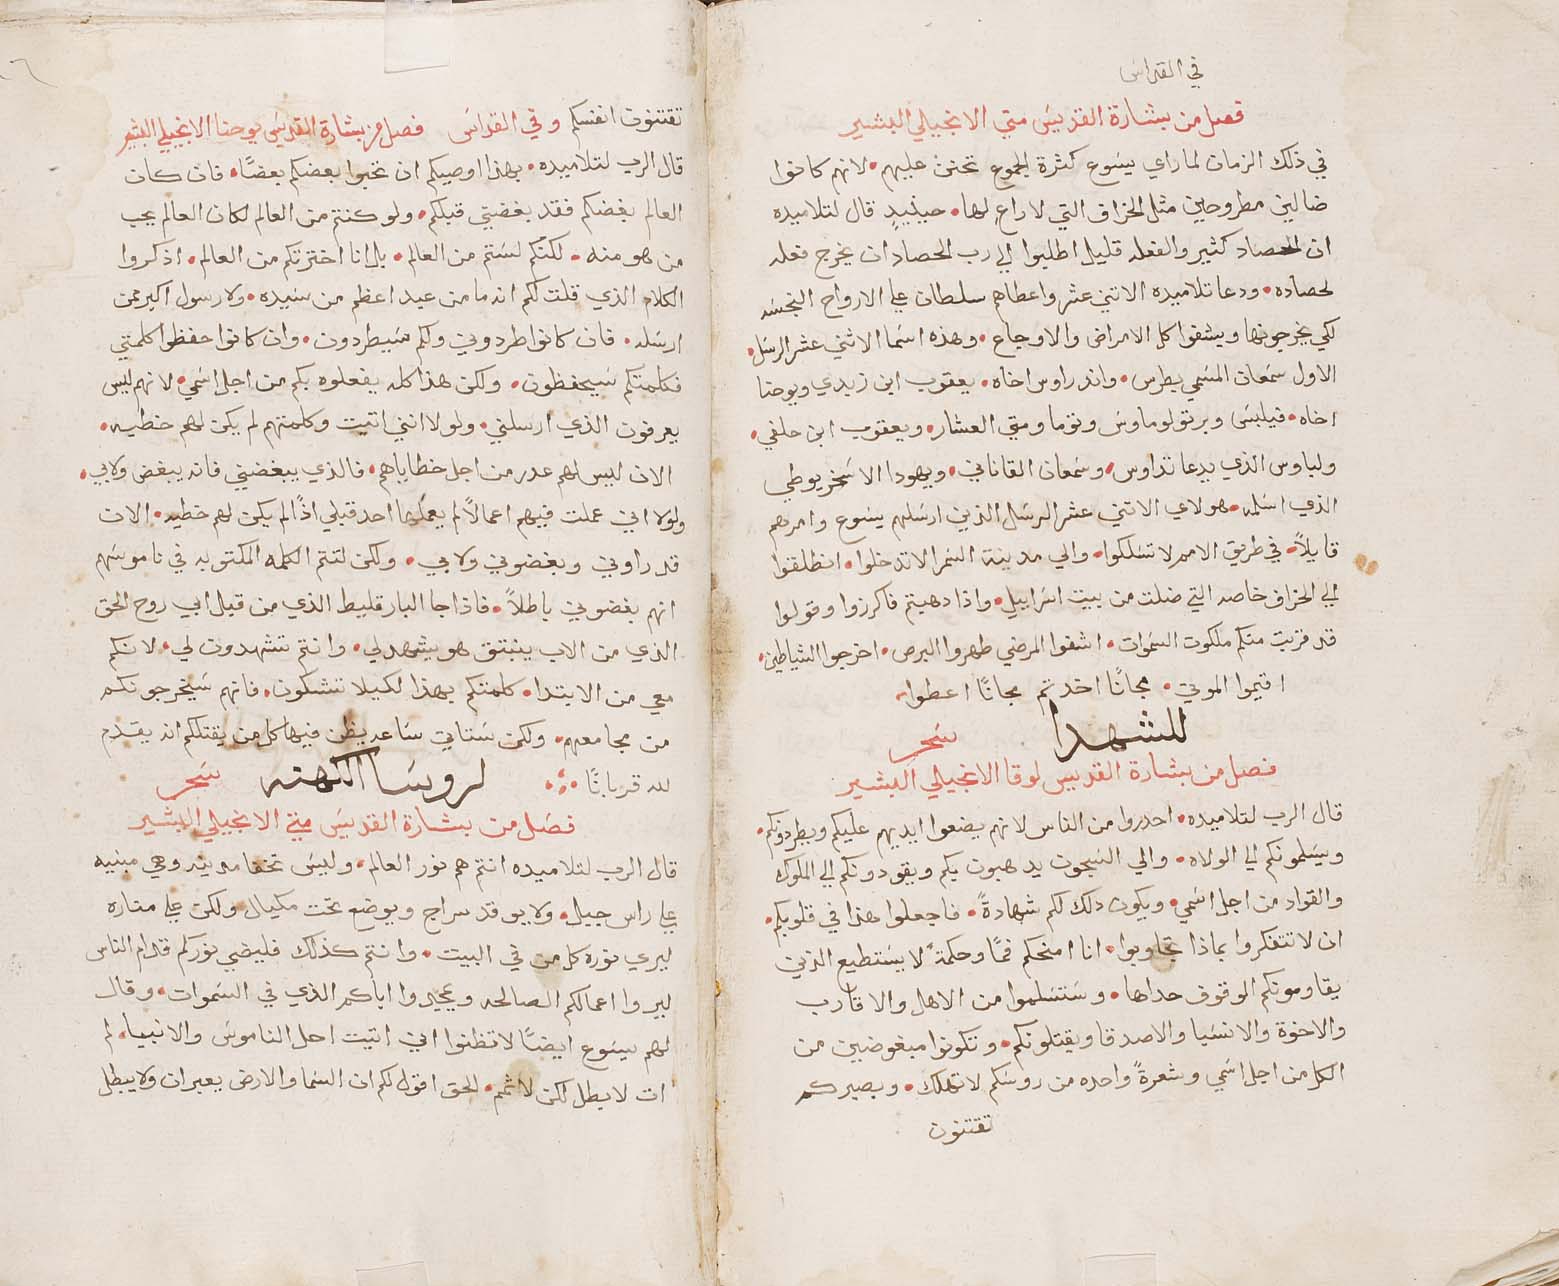 في القداس
فصل من بشارة القديس متي الانجيلي البشير
في ذلك الزمان لما راي يسوع كثرة الجموع تحنن عليهم • لانهم كانوا
ضالين مطروحين مثل الخراف التي لا راع لها • حينيدٍ قال لتلاميده
ان الحصاد كثير والفعله قليل اطلبوا الي رب الحصاد ان يخرج فعله
لحصاده • ودعا تلاميده الاتني عشر واعطاهم سلطان علي الارواح النجسه
لكي يخرجونها ويشفوا كل الامراض والاوجاع • وهذه اسما الاثني عشر الرسل •
الاول سمعان المسمي بطرس • واندراوس اخاه • يعقوب ابن زبدي ويوحنا
اخاه • فيلبس وبرتولوماوس وتوما ومتي العشار • ويعقوب ابن حلفي •
ولباوس الذي يدعا تداوس • وسمعان القاناني • ويهودا الاسخريوطي
الذي اسلمه • هولاي الاتني عشر الرسل الذين ارسلهم يسوع وامرهم
قايلاً • في طريق الامم لا تسلكوا • والي مدينة السمرا لا تدخلوا • انطلقوا
الي الخراف خاصه التي ضلت من بيت اسراييل • واذا دهبتم فاكرزوا وقولوا
قد قربت منكم ملكوت السموات • اشفوا المرضي طهروا البرص • اخرجوا الشياطين •
اقيموا الموتي • مجانًا اخدتم مجانًا اعطوا •
للشهدا سحر
فصل من بشارة القديس لوقا الانجيلي البشير
قال الرب لتلاميده • احدروا من الناس لانهم يضعوا ايديهم عليكم ويطردونكم •
ويسلمونكم الي الولاه • والي السجون يدهبون بكم ويقودونكم الي الملوك
والقواد من اجل اسمي • ويكون دلك لكم شهادةً • فاجعلوا هذا في قلوبكم •
ان لا تتفكروا بماذا تجاوبوا • انا امنحكم فمًا وحكمةً لا يستطيع الذين
يقاومونكم الوقوف حداها • وستسلموا من الاهل والاقارب
والاخوة والانسيا والاصدقا ويقتلونكم • وتكونوا مبغوضين من
الكل من اجل اسمي وشعرةً واحده من روسكم لا تهلك • وبصبركم
تقتنون
تقتنون انفسكم وفي القداس فصل من بشارة القديس يوحنا الانجيلي البشير
قال الرب لتلاميده • بهذا اوصيكم ان تحبوا بعضكم بعضًا • فان كان
العالم يبغضكم فقد بغضني قبلكم • ولو كنتم من العالم لكان العالم يحب
من هو منه • لكنكم لستم من العالم • بل انا اخترتكم من العالم • اذكروا
الكلام الذي قلت لكم انه ما من عبد اعظم من سيده • ولا رسول اكبر ممن
ارسله • فان كانوا طردوني ولكم سيطردون • وان كانوا حفظوا كلمتي
فكلمتكم سيحفظون • ولكن هذا كله يفعلوه بكم من اجل اسمي • لانهم ليس
يعرفون الذي ارسلني • ولولا انني اتيت وكلمتهم لم يكن لهم خطيه •
الان ليس لهم عدر من اجل خطاياهم • فالذي يبغضني فانه يبغض ولابي •
ولولا اني عملت فيهم اعمالاً لم يعملها احد قبلي اذًا لم يكن لهم خطيه • الان
قد راوني وبغضوني ولابي • ولكن لتتم الكلمه المكتوبه في ناموسهم
انهم بغضوني باطلاً • فاذا جا البارقليط الذي من قبل ابي روح الحق
الذي من الاب ينبتق هو يشهد لي • وانتم تشهدون لي • لانكم
معي من الابتدا • كلمتكم بهذا لكيلا تشكون • فانهم سيخرجونكم
من مجامعهم • ولكن ستاتي ساعه يظن فيها كل من يقتلكم انه يقدم
لله قربانًا لروسا الكهنه سحر
فصل من بشارة القديس متي الانجيلي البشير
قال الرب لتلاميده انتم هم نور العالم • وليس تخفا مدينه وهي مبنيه
علي راس جبل • ولا يوقد سراج ويوضع تحت مكيال ولكن علي مناره
ليري نوره كل من في البيت • وانتم كذلك فليضي نوركم قدام الناس
ليروا اعمالكم الصالحه ويمجدوا اباكم الذي في السموات • وقال
لهم يسوع ايضًا لا تظنوا اني اتيت احل الناموس والانبيا • لم
ات لابطل لكن لاتمم • الحق اقول لكم ان السما والارض يعبران ولا يبطل